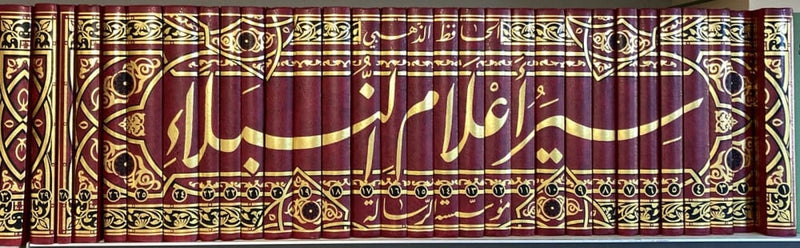 الحافظ الذهبي
سيرُ أعْلام النُّبَلاءِ
١ ٢ ٣ ٤ ٥ ٦ ٧ ٨ ٩ ١٠ ١١ ١٢ ١٣ ١٤ ١٥ ١٦ ١٧ ١٨ ١٩ ٢٠ ٢١ ٢٢ ٢٣ ٢٤ ٢٥ ٢٦ ٢٧ ٢٨ ٢٩
مؤسسة الرسالة